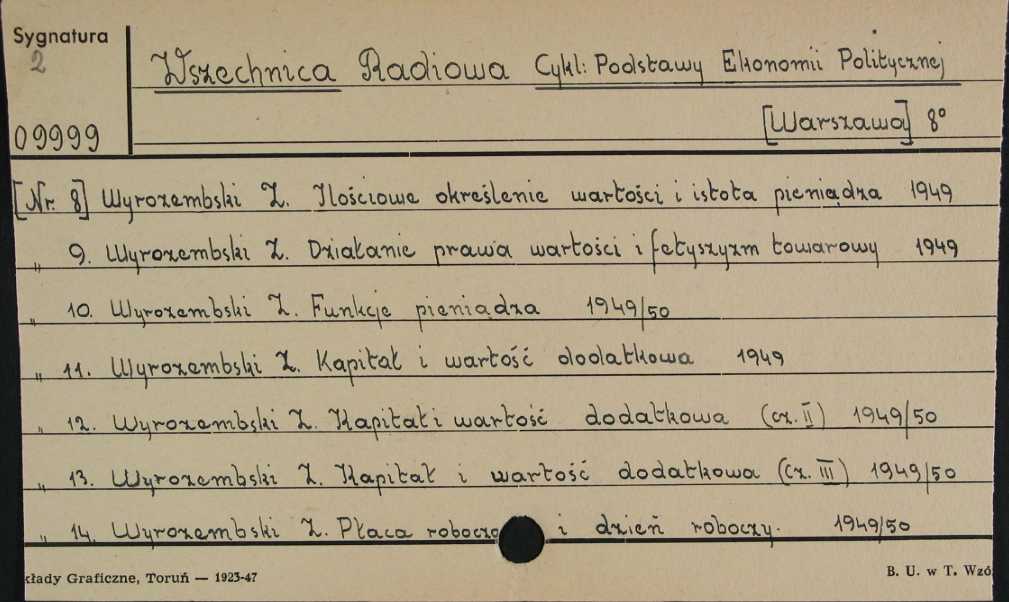 Sygnatura
2
09999
Wszechnica Radiowa Cykl: Podstawy Ekonomii Politycznej
[Warszawa] 8°
[Nr. 8] Wyrozembski Z. Ilościowe określenie wartości i istota pieniądza 1949
„ 9. Wyrozembski Z. Działanie prawa wartości i fetyszyzm towarowy 1949
„ 10. Wyrozembski Z. Funkcje pieniądza 1949/50
„ 11. Wyrozembski Z. Kapitał i wartość dodatkowa 1949
„ 12. Wyrozembski Z. Kapitał i wartość dodatkowa (cz. II) 1949/50
„ 13. Wyrozembski Z. Kapitał i wartość dodatkowa (cz. III) 1949/50
„ 14. Wyrozembski Z. Płaca robocza i dzień roboczy. 1949/50
kłady Graficzne, Toruń — 1923-47
B. U. w T. Wzó